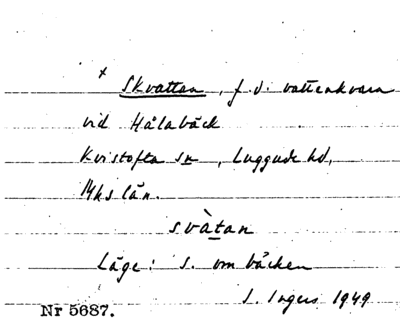 x Skvattan, f.d. vattenkvarn
vid Hålabäck
Kvistofta sn, Luggude hd,
Mhs län.
svàtan
Läge: S. om bäcken
I. Ingers 1949
Nr 5687.